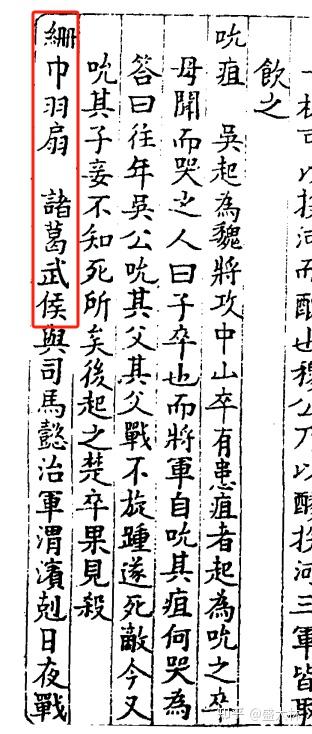 可以投河而釀也穆公乃以醪投河三軍皆
飲之
吮疽　吳起為魏將攻中山卒有患疽者起為吮之卒
母聞而哭之人曰子卒也而將軍自吮其疽何哭為
答曰往年吳公吮其父其父戰不旋踵遂死敵今又
吮其子妾不知死所矣後起之楚卒果見殺
綸巾羽扇　諸葛武侯與司馬懿治軍渭濱剋日夜戰
知乎 @盛大林